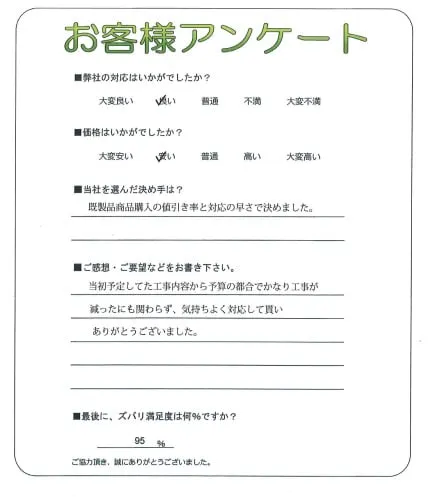 お客様アンケート
■弊社の対応はいかがでしたか？
大変良い 良い 普通 不満 大変不満
■価格はいかがでしたか？
大変安い 安い 普通 高い 大変高い
■当社を選んだ決め手は？
既製品商品購入の値引き率と対応の早さで決めました。
■ご感想・ご要望などをお書き下さい。
当初予定してた工事内容から予算の都合でかなり工事が
減ったにも関わらず、気持ちよく対応して貰い
ありがとうございました。
■最後に、ズバリ満足度は何％ですか？
95 %
ご協力頂き、誠にありがとうございました。